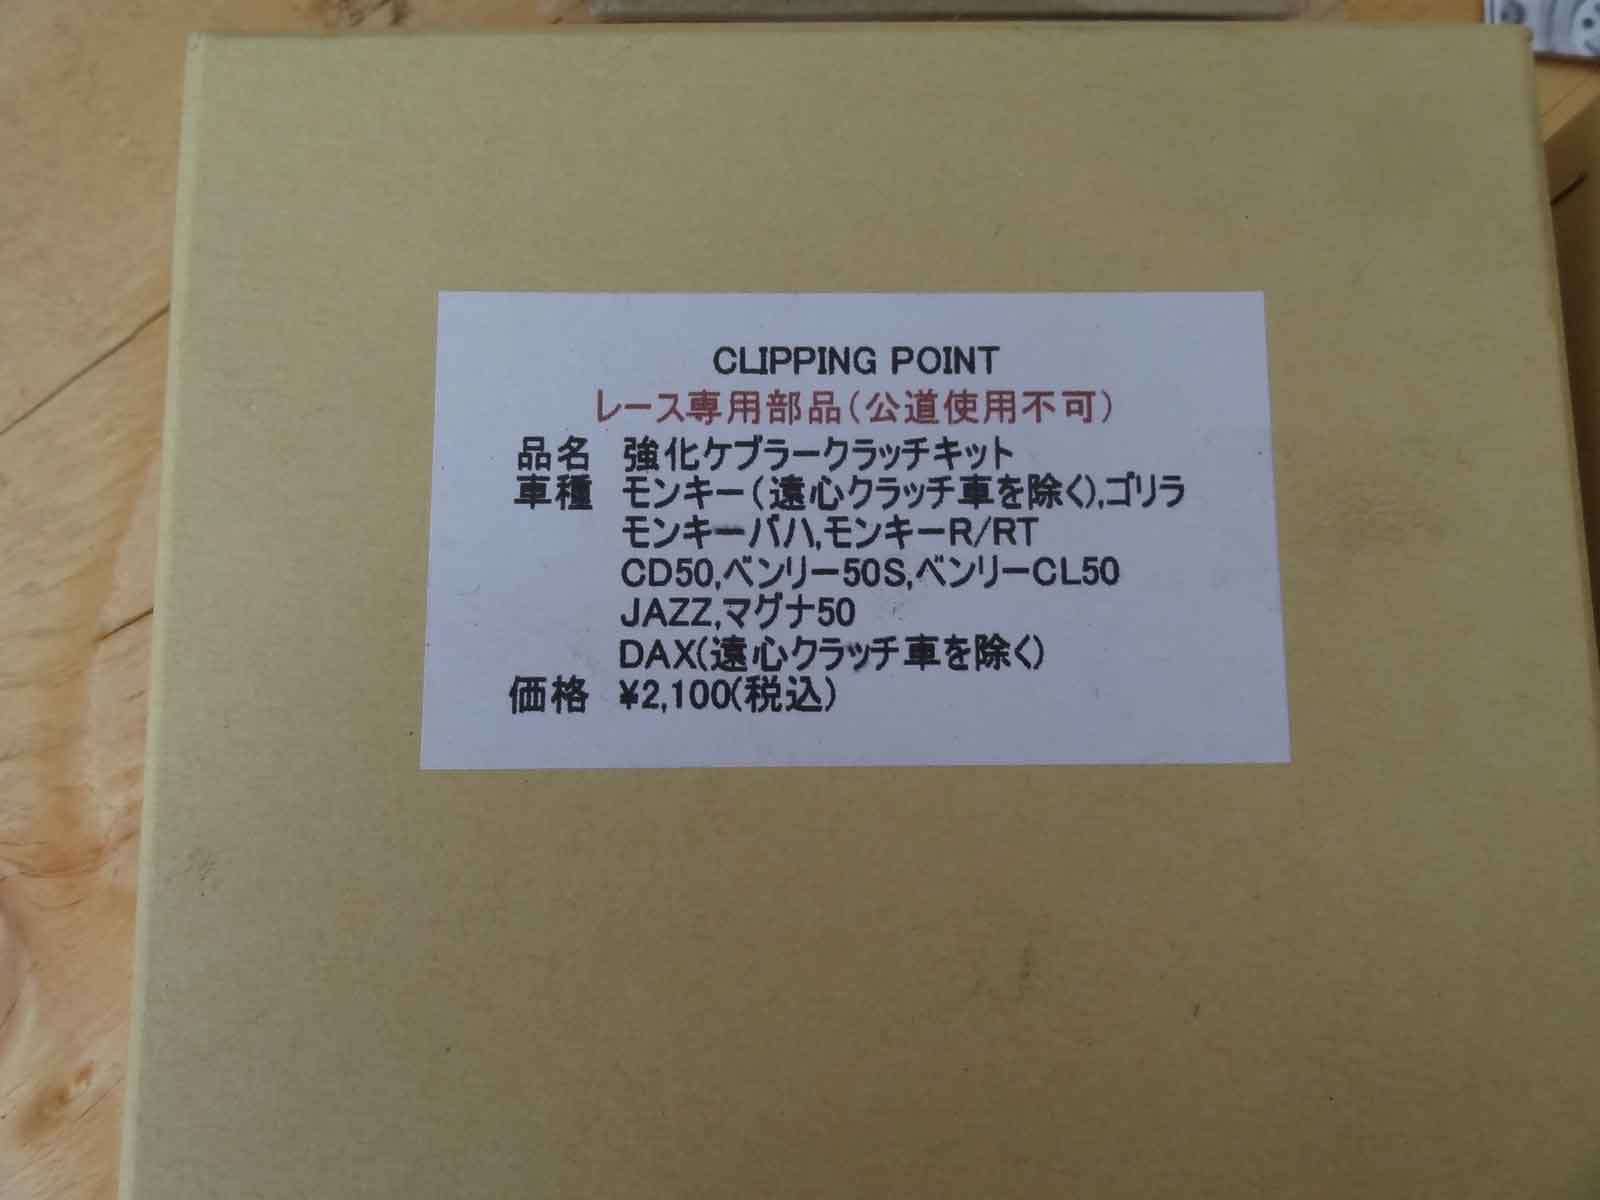 CLIPPING POINT
レース専用部品(公道使用不可)
品名 強化ケブラークラッチキット
車種 モンキー(遠心クラッチ車を除く),ゴリラ
モンキーバハ,モンキーR/RT
CD50,ベンリー50S,ベンリーCL50
JAZZ,マグナ50
DAX(遠心クラッチ車を除く)
価格 ¥2,100(税込)